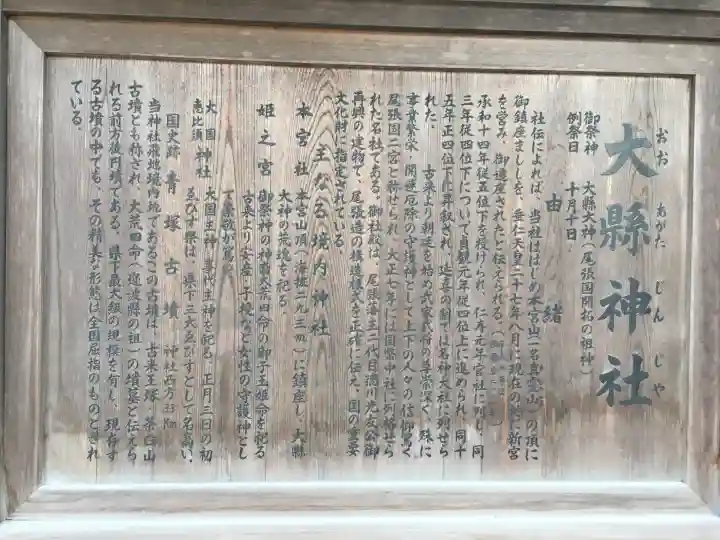 おおあがたじんじゃ
大縣神社
御祭神　大縣大神(尾張国開拓の祖神)
例祭日　十月十日
由緒
社伝によれば、当社ははじめ本宮山の頂に
御鎮座ましましを、垂仁天皇二十七年八月に現在の地に新宮
を営み、御遷座されたと伝えられる。
承和十四年従五位下を授けられ、仁寿元年官社に列し、同
三年従四位下についで貞観元年従四位上に進められ、同十
五年正四位下に昇叙され、延喜の制では名神大社に列せら
れた。
古来より朝廷を始め武家武将の尊崇深く、殊に
事業繁栄・開運厄除の守護神として上下の人々の信仰篤く
尾張国二宮と称せられ、大正七年には国幣中社に列格せら
れた名社である。御社殿は、尾張藩主二代目徳川光友公御
再興の建物で、尾張造の構造様式を正確に伝え、国の重要
文化財に指定されている。
主なる境内神社
本宮社　本宮山頂(海抜二九三m)に鎮座し、大縣
大神の荒魂を祀る。
姫之宮　御祭神の神裔大荒田命の御子玉姫命を祀る
古来より安産・子授など女性の守護神とし
て崇敬が篤い。
大国恵比須神社　大国主神・事代主神を祀る。正月三日の初
ゑびす祭は、県下三大ゑびすとして名高い。
国史跡青塚古墳　神社西方3.3Km
当神社飛地境内地であるこの古墳は、古来王塚・茶臼山
古墳とも称され、大荒田命(邇波縣の祖)の墳墓と伝えら
れる前方後円墳である。県下最大級の規模を有し、現存す
る古墳の中でも、その精美な形態は全国屈指のものとされ
ている。